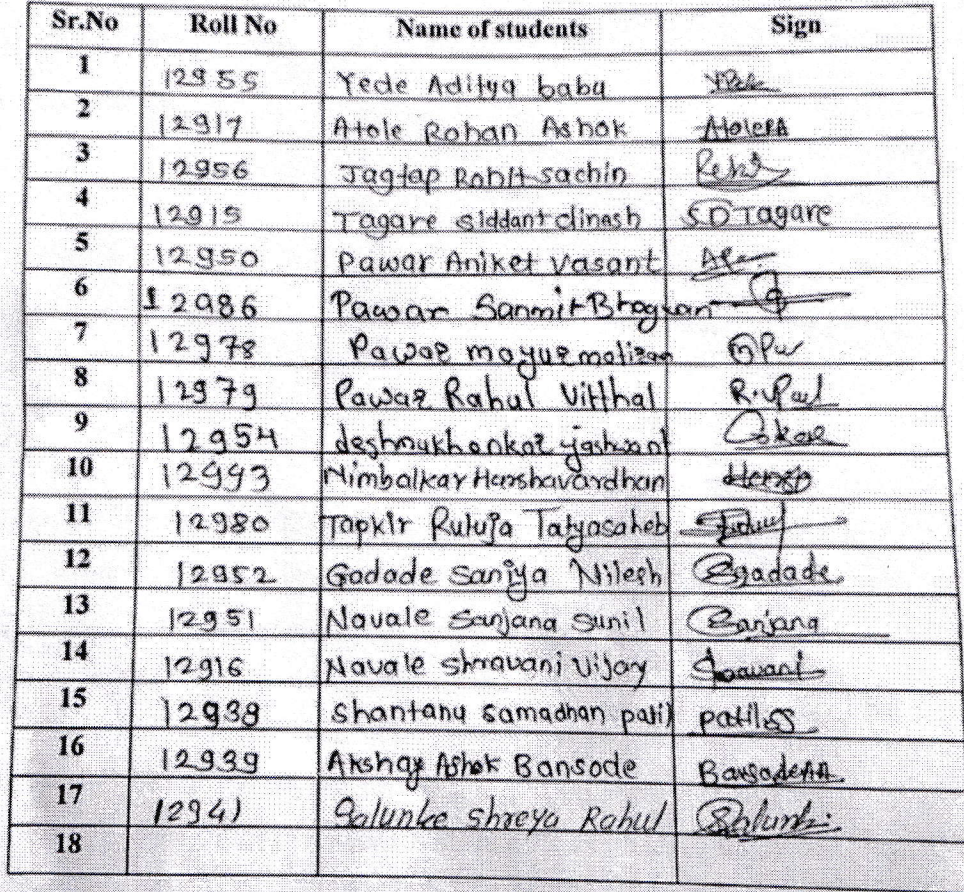 Sr.No Roll No Name of students Sign
1 12955 Yede Aditya babu
2 12917 Atole Rohan Ashok AtoleRA
3 12956 Jagtap Rohit sachin
4 12915 Tagare siddant dinesh S D Tagare
5 12950 Pawar Aniket Vasant
6 12986 Pawar Sanmit Bhagwan
7 12978 Pawar mayur
8 12979 Pawar Rahul Vitthal
9 12954 deshmukh onkar yashwant
10 12993 Nimbalkar Harshavardhan
11 12980 Tapkir Rutuja Tatyasaheb
12 12952 Gadade Saniya Nilesh Sgadade
13 12951 Navale Sanjana Sunil Sanjana
14 12916 Navale shravani Vijay Shravani
15 12938 Shantanu Samadhan patil patilSS
16 12939 Akshay Ashok Bansode BansodeAA
17 12941 Salunke Shreya Rahul
18